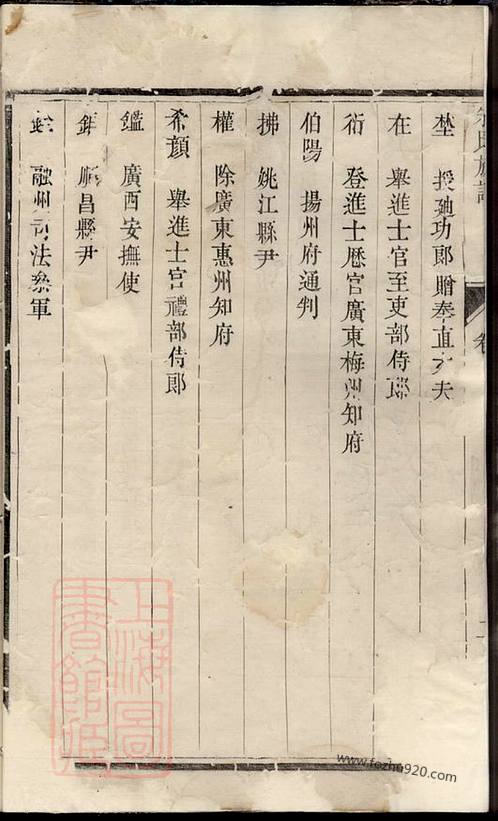 埜 授廸功郎贈奉直大夫
在 舉進士官至吏部侍郎
衍 登進士歷官廣東梅州知府
伯陽 揚州府通判
拂 姚江縣尹
權 除廣東惠州知府
希顔 舉進士官禮部侍郎
鑑 廣西安撫使
順昌縣尹
融州司法叅軍
氏族譜
卷
上海圖書館藏
www.fozhu920.com